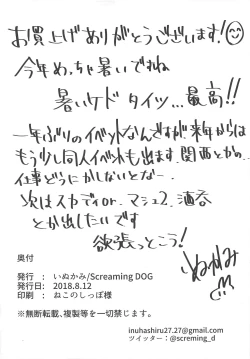 お買上げありがとうございます!
今年めっちゃ暑いですね
暑いケドタイツ…最高!!
一年ぶりのイベントなんですが、来年からは
もう少し同人イベントも出ます。関西とか…
仕事どうにかしないとな…
次はスカディor.マシュ2.酒呑
とか出したいです
欲張っとこう!
いぬかみ
奥付
発行 : いぬかみ/Screaming DOG
発行日: 2018.8.12
印刷 : ねこのしっぽ様
※無断転載、複製等を一切禁じます。
inuhashiru27.27@gmail.com
ツイッター:@screming_d